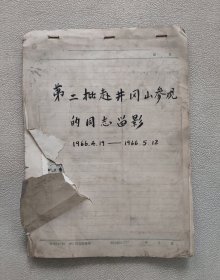 第二批赴井冈山参观
的同志留影
1966.4.19——1966.5.12